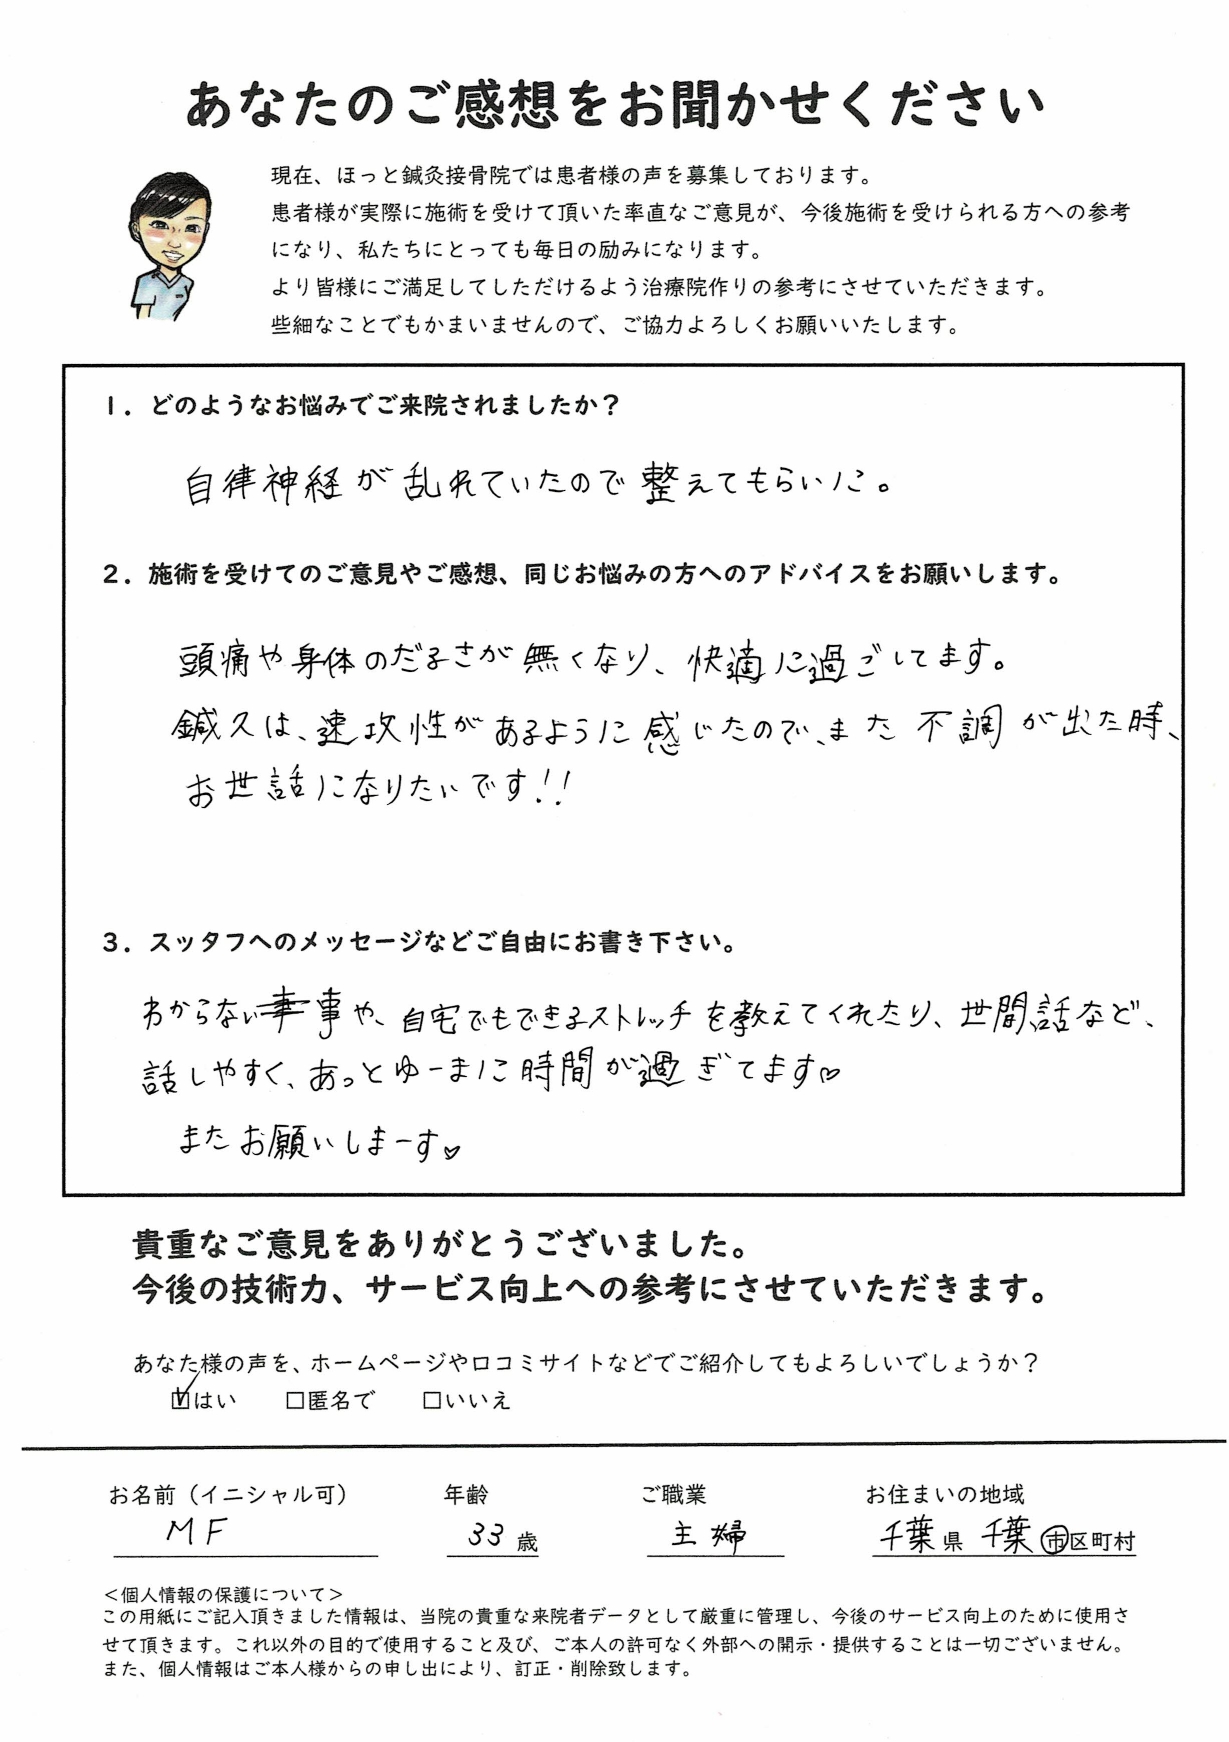 あなたのご感想をお聞かせください
現在、ほっと鍼灸接骨院では患者様の声を募集しております。
患者様が実際に施術を受けて頂いた率直なご意見が、今後施術を受けられる方への参考
になり、私たちにとっても毎日の励みになります。
より皆様にご満足してしただけるよう治療院作りの参考にさせていただきます。
些細なことでもかまいませんので、ご協力よろしくお願いいたします。
1．どのようなお悩みでご来院されましたか？
自律神経が乱れていたので整えてもらいに。
2．施術を受けてのご意見やご感想、同じお悩みの方へのアドバイスをお願いします。
頭痛や身体のだるさが無くなり、快適に過ごしてます。
鍼久は、速攻性があるように感じたので、また不調が出た時、
お世話になりたいです!!
3．スッタフへのメッセージなどご自由にお書き下さい。
わからない事や、自宅でもできるストレッチを教えてくれたり、世間話など、
話しやすく、あっとゆーまに時間が過ぎてます♡
またお願いしまーす♡
貴重なご意見をありがとうございました。
今後の技術力、サービス向上への参考にさせていただきます。
あなた様の声を、ホームページや口コミサイトなどでご紹介してもよろしいでしょうか？
☑はい　□匿名で　□いいえ
お名前（イニシャル可）　年齢　ご職業　お住まいの地域
MF　33歳　主婦　千葉県 千葉市区町村
＜個人情報の保護について＞
この用紙にご記入頂きました情報は、当院の貴重な来院者データとして厳重に管理し、今後のサービス向上のために使用さ
せて頂きます。これ以外の目的で使用すること及び、ご本人の許可なく外部への開示・提供することは一切ございません。
また、個人情報はご本人様からの申し出により、訂正・削除致します。